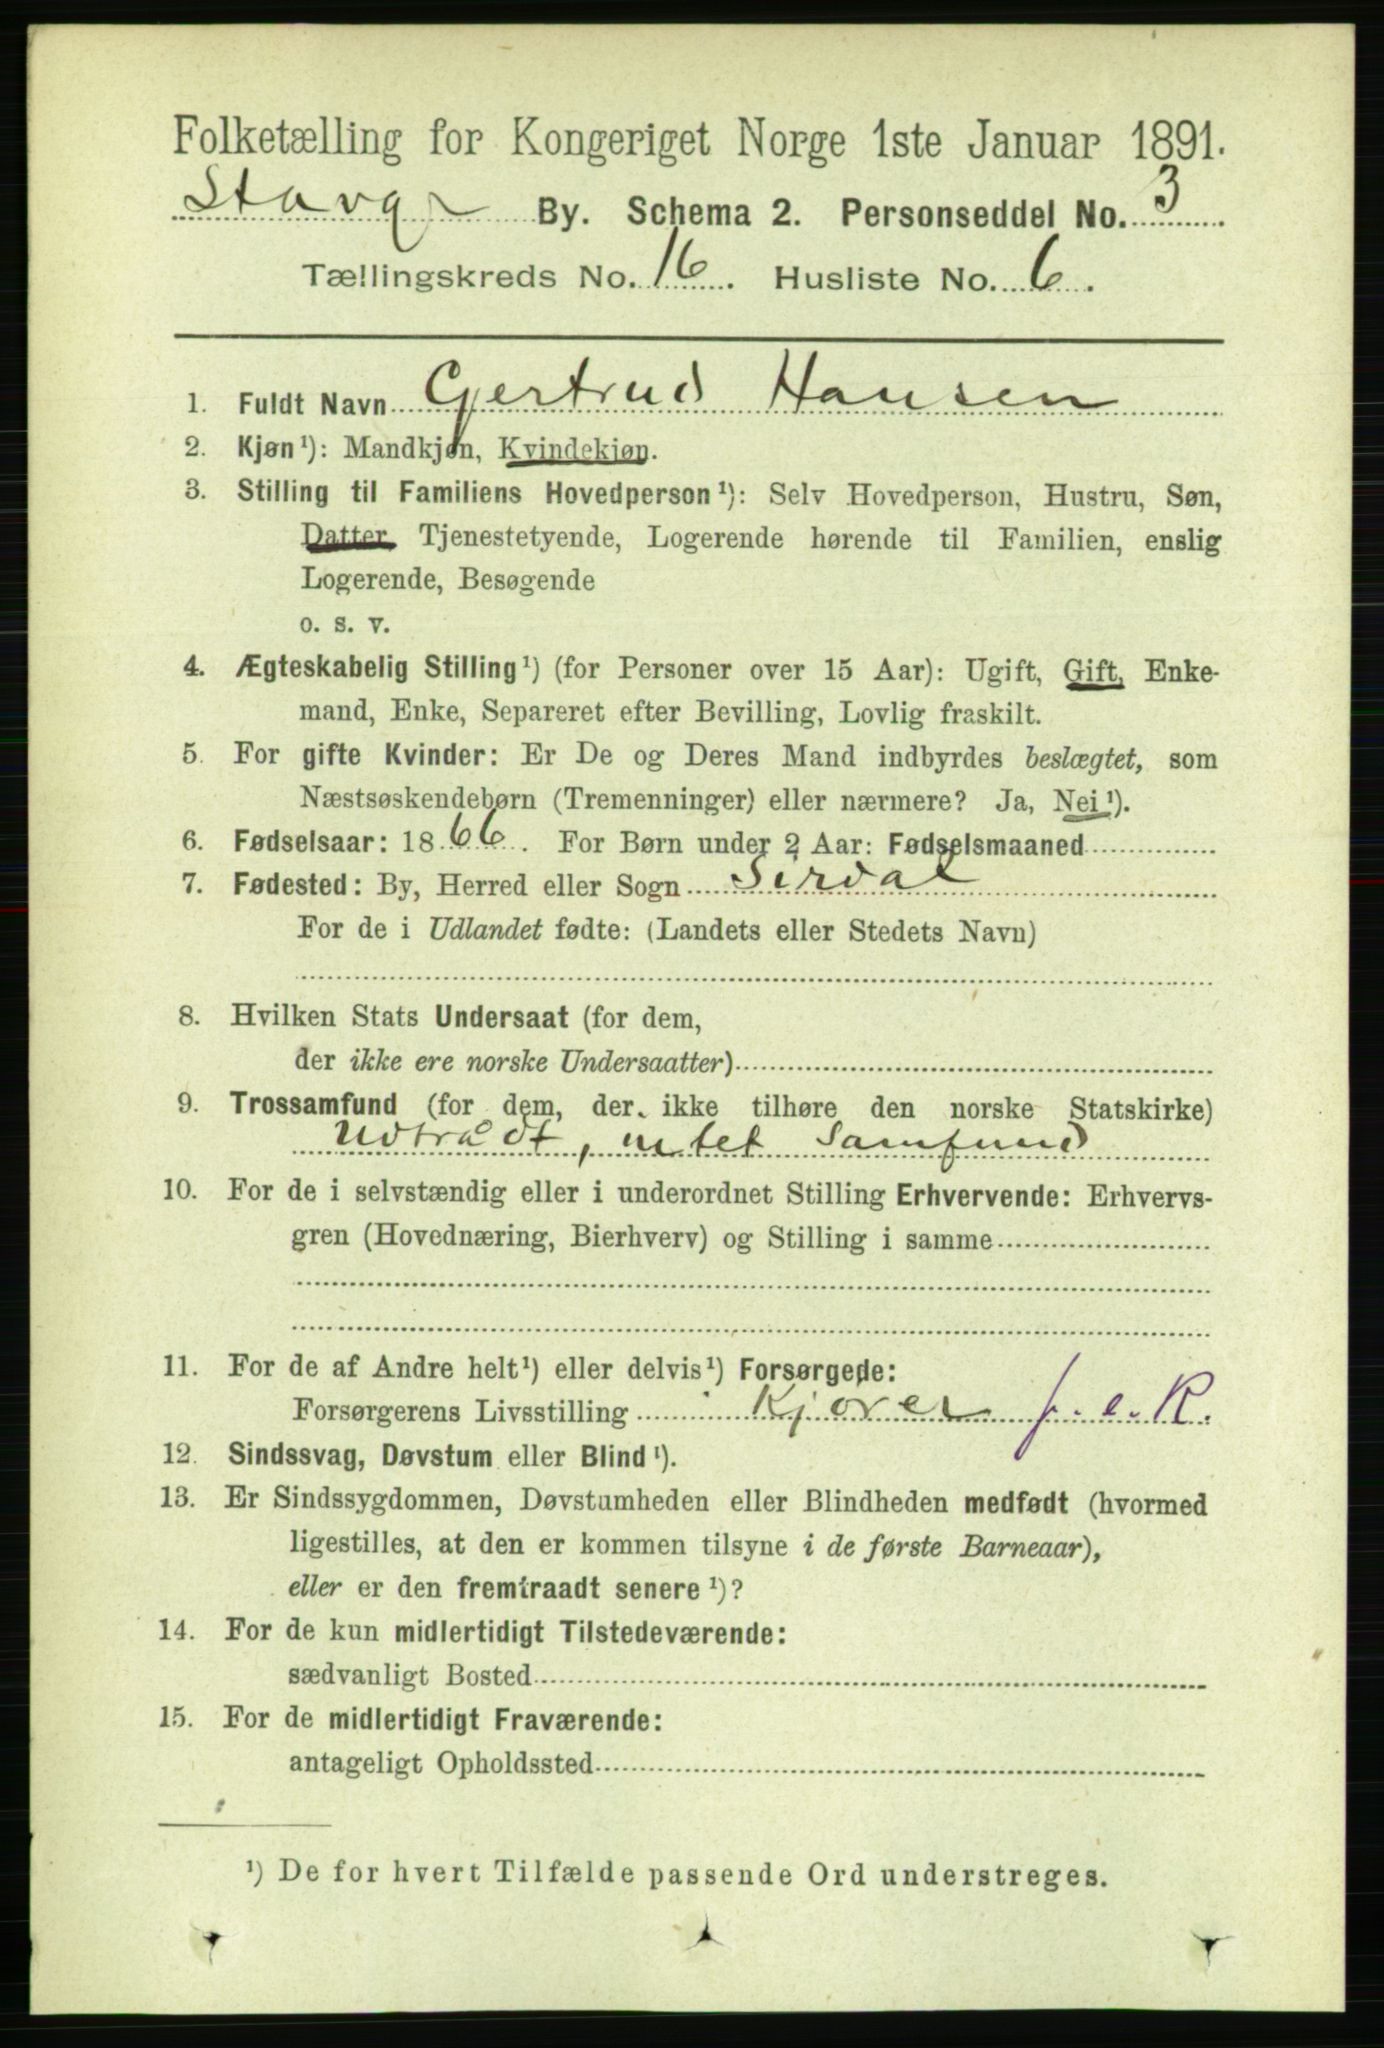 Folketælling for Kongeriget Norge 1ste Januar 1891.
Stavgr By. Schema 2. Personseddel No. 3
Tællingskreds No. 16. Husliste No. 6.
1. Fuldt Navn Gertrud Hansen
2. Kjøn¹): Mandkjøn, Kvindekjøn.
3. Stilling til Familiens Hovedperson¹): Selv Hovedperson, Hustru, Søn,
Datter, Tjenestetyende, Logerende hørende til Familien, enslig
Logerende, Besøgende
o. s. v.
4. Ægteskabelig Stilling¹) (for Personer over 15 Aar): Ugift, Gift, Enke-
mand, Enke, Separeret efter Bevilling, Lovlig fraskilt.
5. For gifte Kvinder: Er De og Deres Mand indbyrdes beslægtet, som
Næstsøskendebørn (Tremenninger) eller nærmere? Ja, Nei¹).
6. Fødselsaar: 1866. For Børn under 2 Aar: Fødselsmaaned
7. Fødested: By, Herred eller Sogn Sirdal
For de i Udlandet fødte: (Landets eller Stedets Navn)
8. Hvilken Stats Undersaat (for dem,
der ikke ere norske Undersaatter)
9. Trossamfund (for dem, der ikke tilhøre den norske Statskirke)
Udtrådt, intet Samfund
10. For de i selvstændig eller i underordnet Stilling Erhvervende: Erhvervs-
gren (Hovednæring, Bierhverv) og Stilling i samme
11. For de af Andre helt¹) eller delvis¹) Forsørgede:
Forsørgerens Livsstilling Kjører f. e. R.
12. Sindssvag, Døvstum eller Blind¹).
13. Er Sindssygdommen, Døvstumheden eller Blindheden medfødt (hvormed
ligestilles, at den er kommen tilsyne i de første Barneaar),
eller er den fremtraadt senere¹)?
14. For de kun midlertidigt Tilstedeværende:
sædvanligt Bosted
15. For de midlertidigt Fraværende:
antageligt Opholdssted
¹) De for hvert Tilfælde passende Ord understreges.